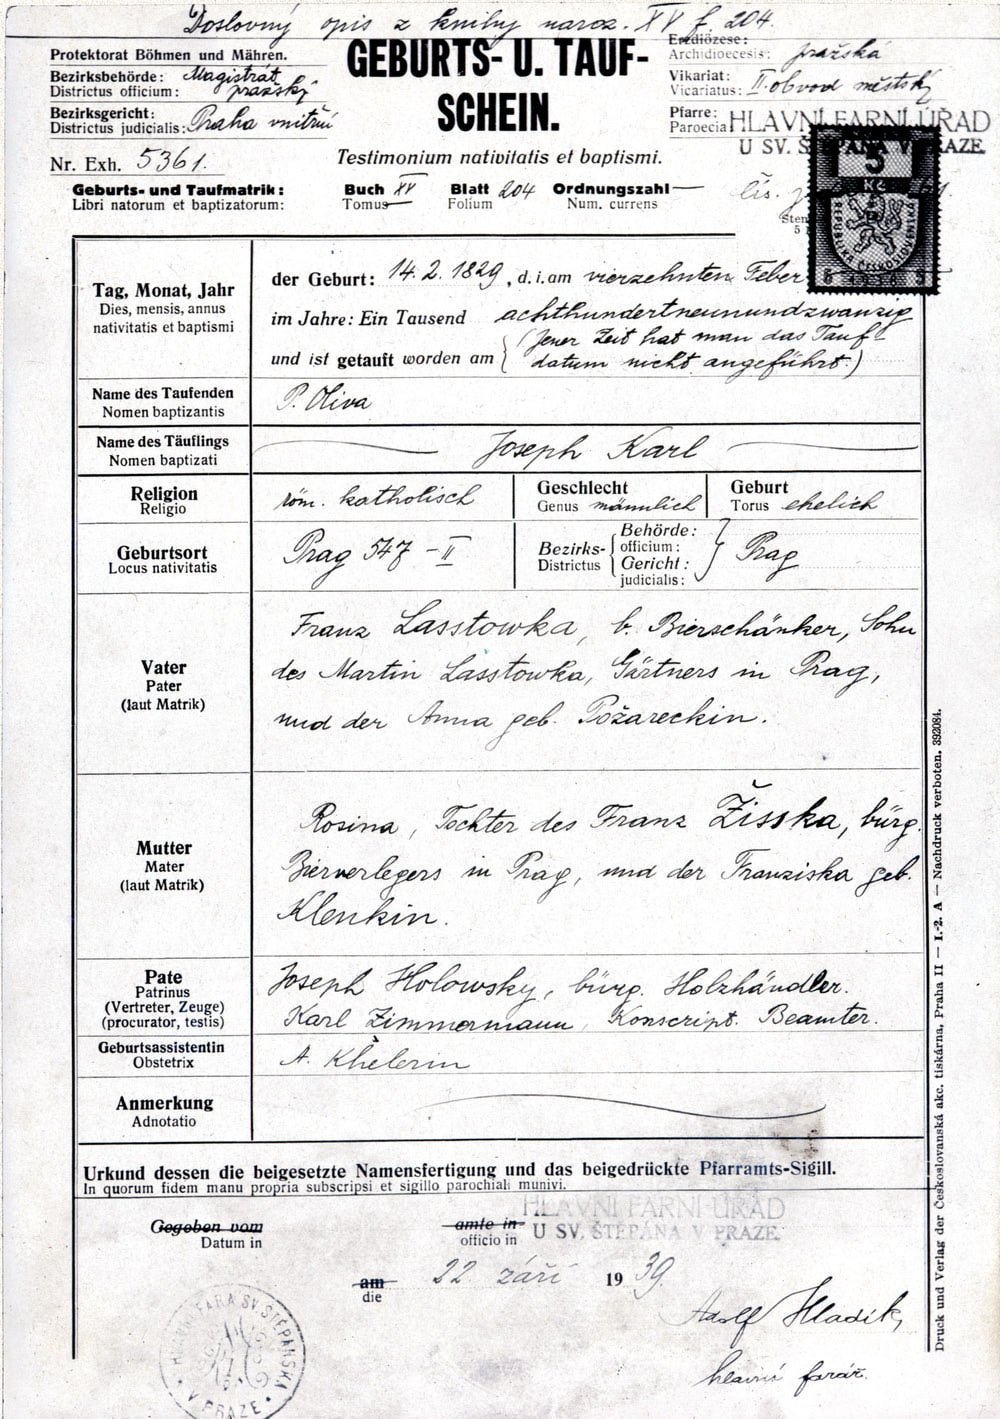 Doslovný opis z knihy naroz. XV f. 204.
Protektorat Böhmen und Mähren.
Bezirksbehörde: Magistrát
Districtus officium: pražský
Bezirksgericht:
Districtus judicialis: Praha vnitřní
Nr. Exh. 5361.
GEBURTS- U. TAUF-
SCHEIN.
Testimonium nativitatis et baptismi.
Erzdiözese:
Archidioecesis: pražská
Vikariat:
Vicariatus: II. obvod městský
Pfarre:
Paroecia HLAVNÍ FARNÍ ÚŘAD
U SV. ŠTĚPÁNA V PRAZE.
Geburts- und Taufmatrik: Buch XV Blatt 204 Ordnungszahl —
Libri natorum et baptizatorum: Tomus Folium Num. currens
čís.
5
Kč
Tag, Monat, Jahr
Dies, mensis, annus
nativitatis et baptismi
der Geburt: 14. 2. 1829, d. i. am vierzehnten Feber
im Jahre: Ein Tausend achthundertneunundzwanzig
und ist getauft worden am (Jener Zeit hat man das Tauf-
datum nicht angeführt.)
Name des Taufenden
Nomen baptizantis
P. Oliva
Name des Täuflings
Nomen baptizati
Joseph Karl
Religion
Religio
röm. katholisch
Geschlecht
Genus männlich
Geburt
Torus ehelich
Geburtsort
Locus nativitatis
Prag 547 - II
Bezirks-
Districtus
Behörde:
officium:
Gericht:
judicialis:
Prag
Vater
Pater
(laut Matrik)
Franz Lasstowka, b. Bierschänker, Sohn
des Martin Lasstowka, Gärtners in Prag,
und der Anna geb. Požareckin.
Mutter
Mater
(laut Matrik)
Rosina, Tochter des Franz Žisska, bürg.
Bierverlegers in Prag, und der Franziska geb.
Klenkin.
Pate
Patrinus
(Vertreter, Zeuge)
(procurator, testis)
Joseph Holowsky, bürg. Holzhändler.
Karl Zimmermann, Konscript. Beamter.
Geburtsassistentin
Obstetrix
A. Khelerin
Anmerkung
Adnotatio
Urkund dessen die beigesetzte Namensfertigung und das beigedrückte Pfarramts-Sigill.
In quorum fidem manu propria subscripsi et sigillo parochiali munivi.
HLAVNÍ FARNÍ ÚŘAD
U SV. ŠTĚPÁNA V PRAZE.
Gegeben vom
Datum in
amte in
officio in
am
die
22 září 1939.
Adolf Hladík,
hlavní farář.
Druck und Verlag der Českoslovanská akc. tiskárna, Praha II — I.-2. A — Nachdruck verboten. 392084.